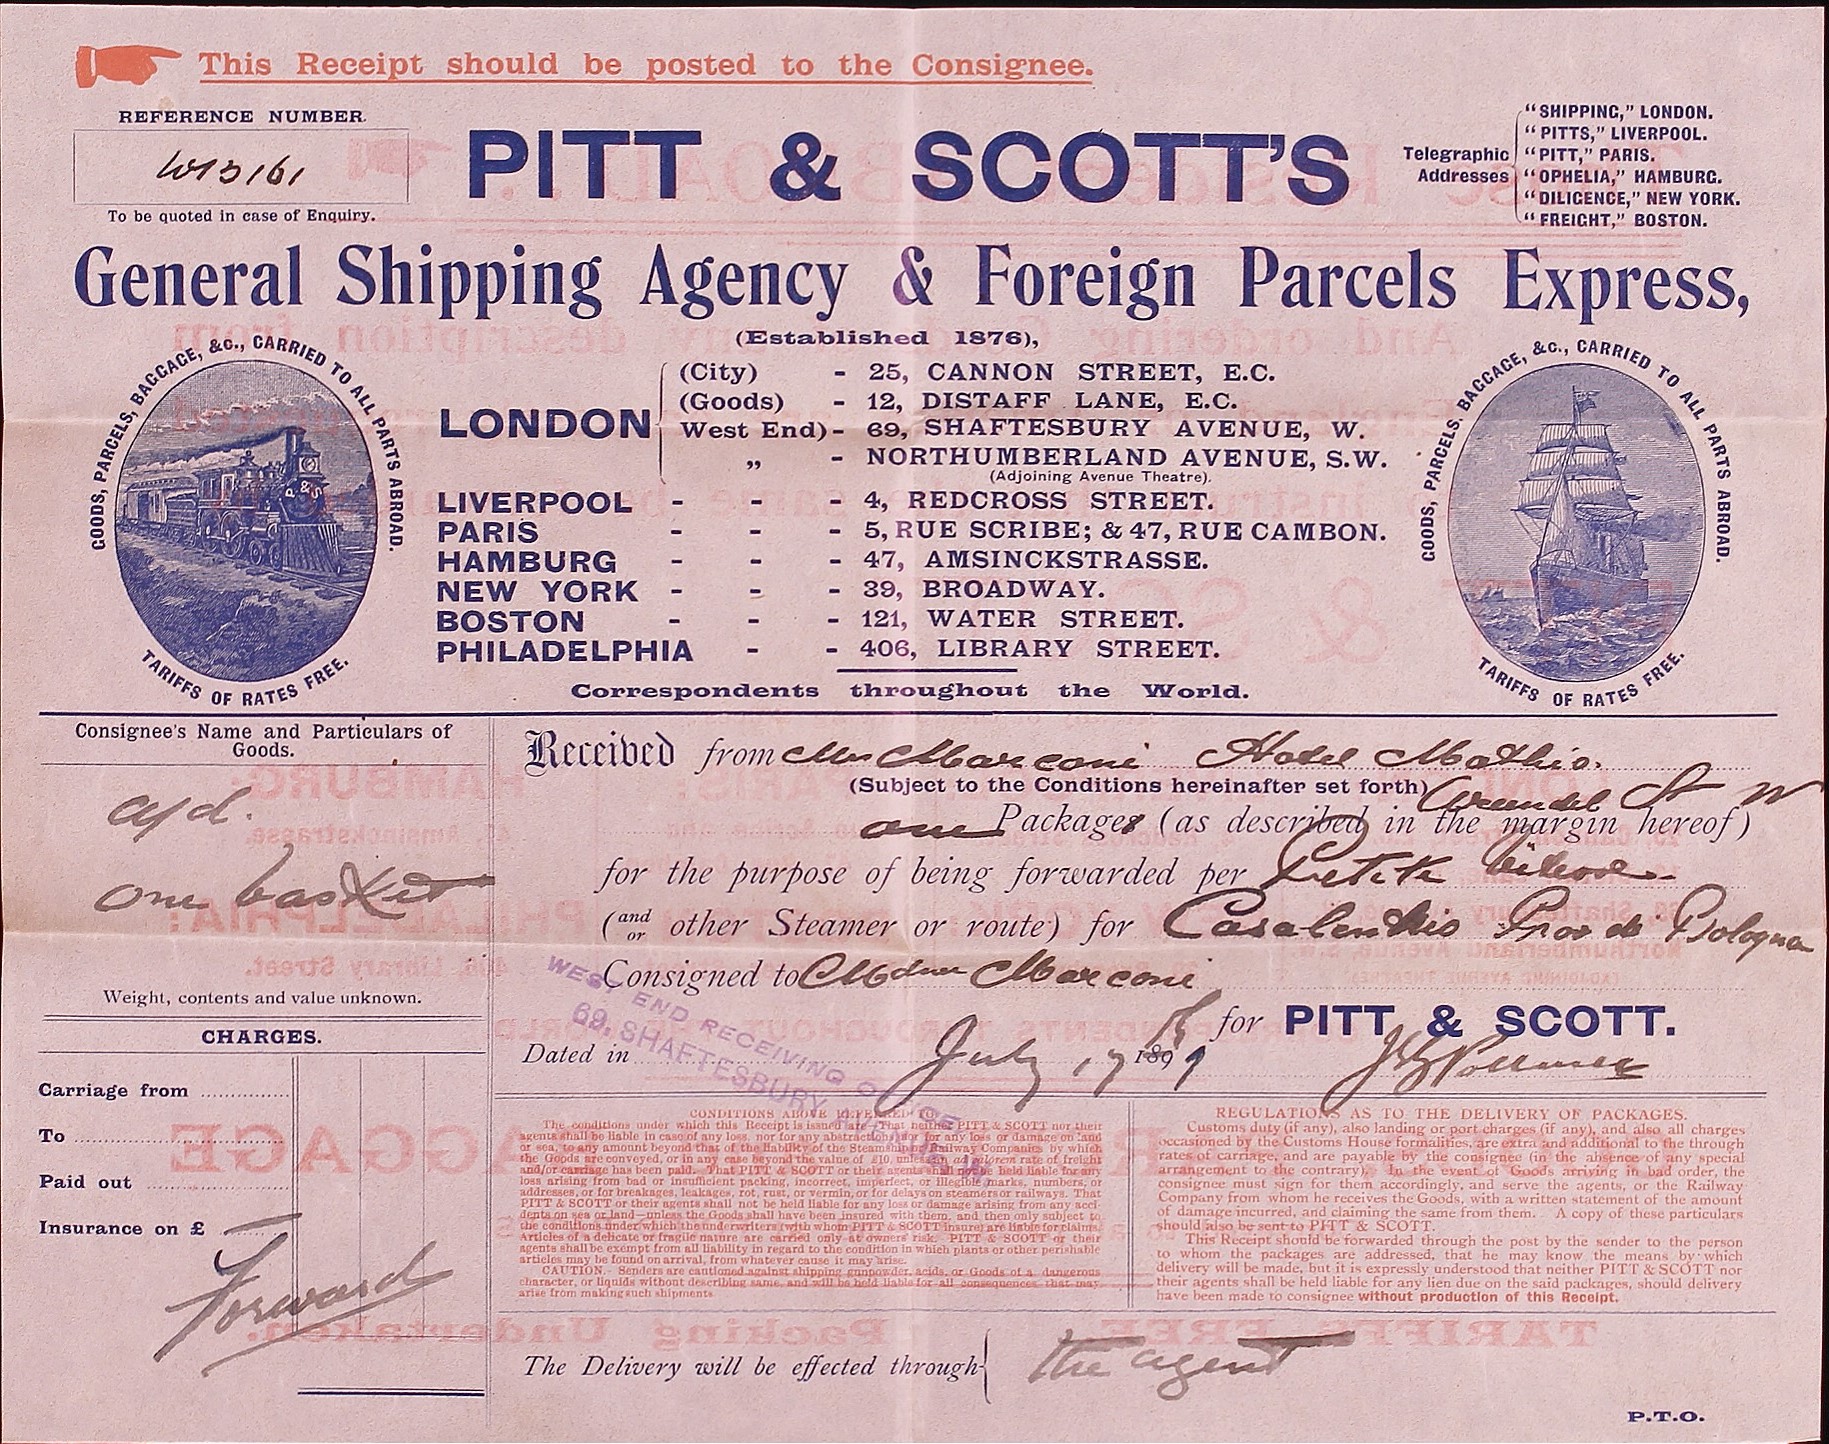 This Receipt should be posted to the Consignee.
REFERENCE NUMBER.
W13161
To be quoted in case of Enquiry.
PITT & SCOTT'S
Telegraphic Addresses
"SHIPPING," LONDON.
"PITTS," LIVERPOOL.
"PITT," PARIS.
"OPHELIA," HAMBURG.
"DILIGENCE," NEW YORK.
"FREIGHT," BOSTON.
General Shipping Agency & Foreign Parcels Express,
(Established 1876),
GOODS, PARCELS, BAGGAGE, &c., CARRIED TO ALL PARTS ABROAD.
P & S
TARIFFS OF RATES FREE.
LONDON
(City) - 25, CANNON STREET, E.C.
(Goods) - 12, DISTAFF LANE, E.C.
West End) - 69, SHAFTESBURY AVENUE, W.
„ - NORTHUMBERLAND AVENUE, S.W.
(Adjoining Avenue Theatre).
LIVERPOOL - - - 4, REDCROSS STREET.
PARIS - - - 5, RUE SCRIBE; & 47, RUE CAMBON.
HAMBURG - - - 47, AMSINCKSTRASSE.
NEW YORK - - - 39, BROADWAY.
BOSTON - - - 121, WATER STREET.
PHILADELPHIA - - 406, LIBRARY STREET.
Correspondents throughout the World.
GOODS, PARCELS, BAGGAGE, &c., CARRIED TO ALL PARTS ABROAD.
TARIFFS OF RATES FREE.
Consignee's Name and Particulars of
Goods.
a/d.
one basket
Weight, contents and value unknown.
CHARGES.
Carriage from
To
Paid out
Insurance on £
Forward
Received from Mrs Marconi Hotel Mathis.
(Subject to the Conditions hereinafter set forth) Arundel St W
one Packages (as described in the margin hereof)
for the purpose of being forwarded per Petite Vitesse
(and/or other Steamer or route) for Casalecchio Prov di Bologna
Consigned to Mdme Marconi
for PITT & SCOTT.
Dated in July 17 1897
WEST END RECEIVING OFFICE
69, SHAFTESBURY AVENUE, W.
CONDITIONS ABOVE REFERRED TO.
The conditions under which this Receipt is issued are—That neither PITT & SCOTT nor their
agents shall be liable in case of any loss, nor for any abstraction from, or for any loss or damage on land
or sea, to any amount beyond that of the liability of the Steamship or Railway Companies by which
the Goods are conveyed, or in any case beyond the value of £10, unless an ad valorem rate of freight
and/or carriage has been paid. That PITT & SCOTT or their agents shall not be held liable for any
loss arising from bad or insufficient packing, incorrect, imperfect, or illegible marks, numbers, or
addresses, or for breakages, leakages, rot, rust, or vermin, or for delays on steamers or railways. That
PITT & SCOTT or their agents shall not be held liable for any loss or damage arising from any acci-
dents on sea or land—unless the Goods shall have been insured with them, and then only subject to
the conditions under which the underwriters (with whom PITT & SCOTT insure) are liable for claims.
Articles of a delicate or fragile nature are carried only at owners' risk. PITT & SCOTT or their
agents shall be exempt from all liability in regard to the condition in which plants or other perishable
articles may be found on arrival, from whatever cause it may arise.
CAUTION.—Senders are cautioned against shipping gunpowder, acids, or Goods of a dangerous
character, or liquids without describing same, and will be held liable for all consequences that may
arise from making such shipments.
REGULATIONS AS TO THE DELIVERY OF PACKAGES.
Customs duty (if any), also landing or port charges (if any), and also all charges
occasioned by the Customs House formalities, are extra and additional to the through
rates of carriage, and are payable by the consignee (in the absence of any special
arrangement to the contrary). In the event of Goods arriving in bad order, the
consignee must sign for them accordingly, and serve the agents, or the Railway
Company from whom he receives the Goods, with a written statement of the amount
of damage incurred, and claiming the same from them. A copy of these particulars
should also be sent to PITT & SCOTT.
This Receipt should be forwarded through the post by the sender to the person
to whom the packages are addressed, that he may know the means by which
delivery will be made, but it is expressly understood that neither PITT & SCOTT nor
their agents shall be held liable for any lien due on the said packages, should delivery
have been made to consignee without production of this Receipt.
The Delivery will be effected through the agent
P.T.O.